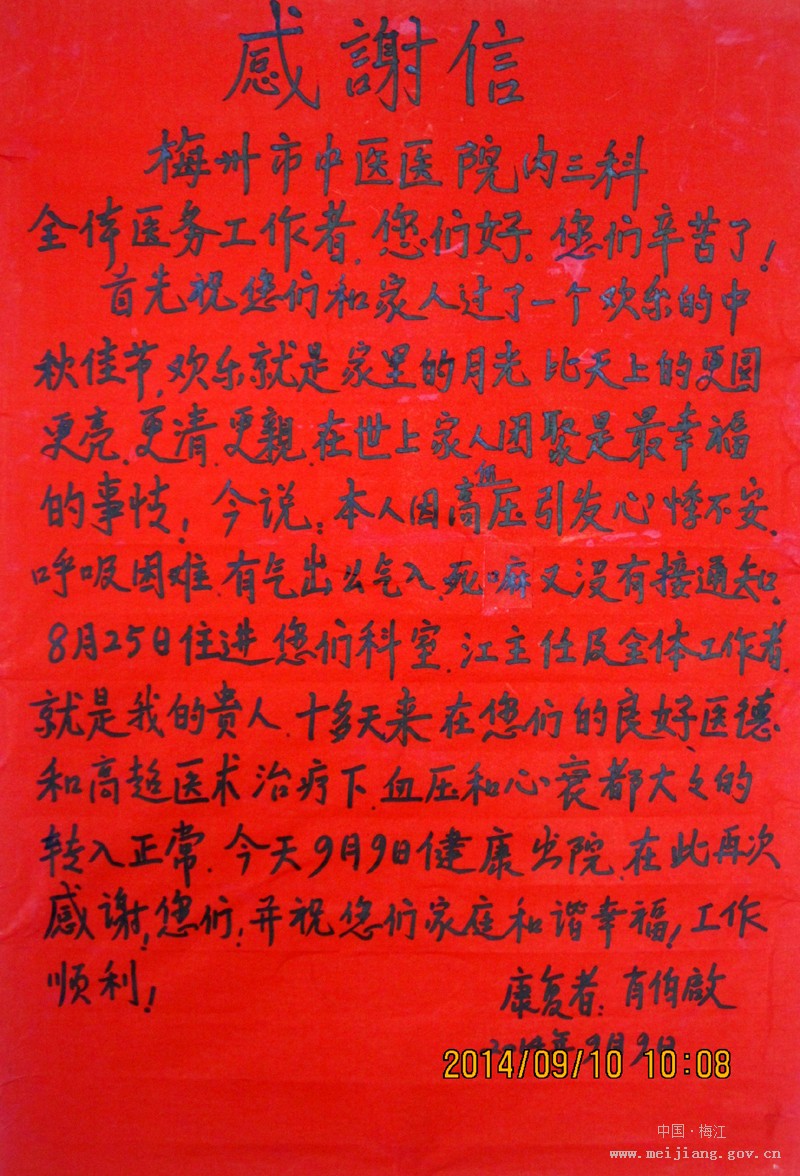 感謝信
梅州市中医医院内三科
全体医务工作者.您们好.您们辛苦了!
首先祝您们和家人过了一个欢乐的中
秋佳节.欢乐就是家里的月光 比天上的更圆
更亮.更清.更親.在世上家人团聚是最幸福
的事情!今说:本人因高血压引发心悸不安.
呼吸困难.有气出么气入.死嘛又没有接通知.
8月25日住进您们科室.江主任及全体工作者.
就是我的贵人.十多天来在您们的良好医德
和高超医术治疗下.血压和心衰都大々的
转入正常.今天9月9日健康出院.在此再次
感谢!您们!并祝您们家庭和谐幸福!工作
顺利!
康复者:肖伯啟
2014年9月9日
2014/09/10 10:08
中国·梅江
www.meijiang.gov.cn